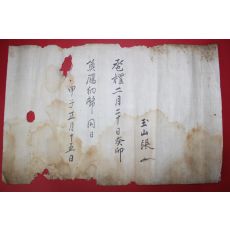 玉山張
奠雁二月二十日癸卯
納幣同日
甲子正月十五日